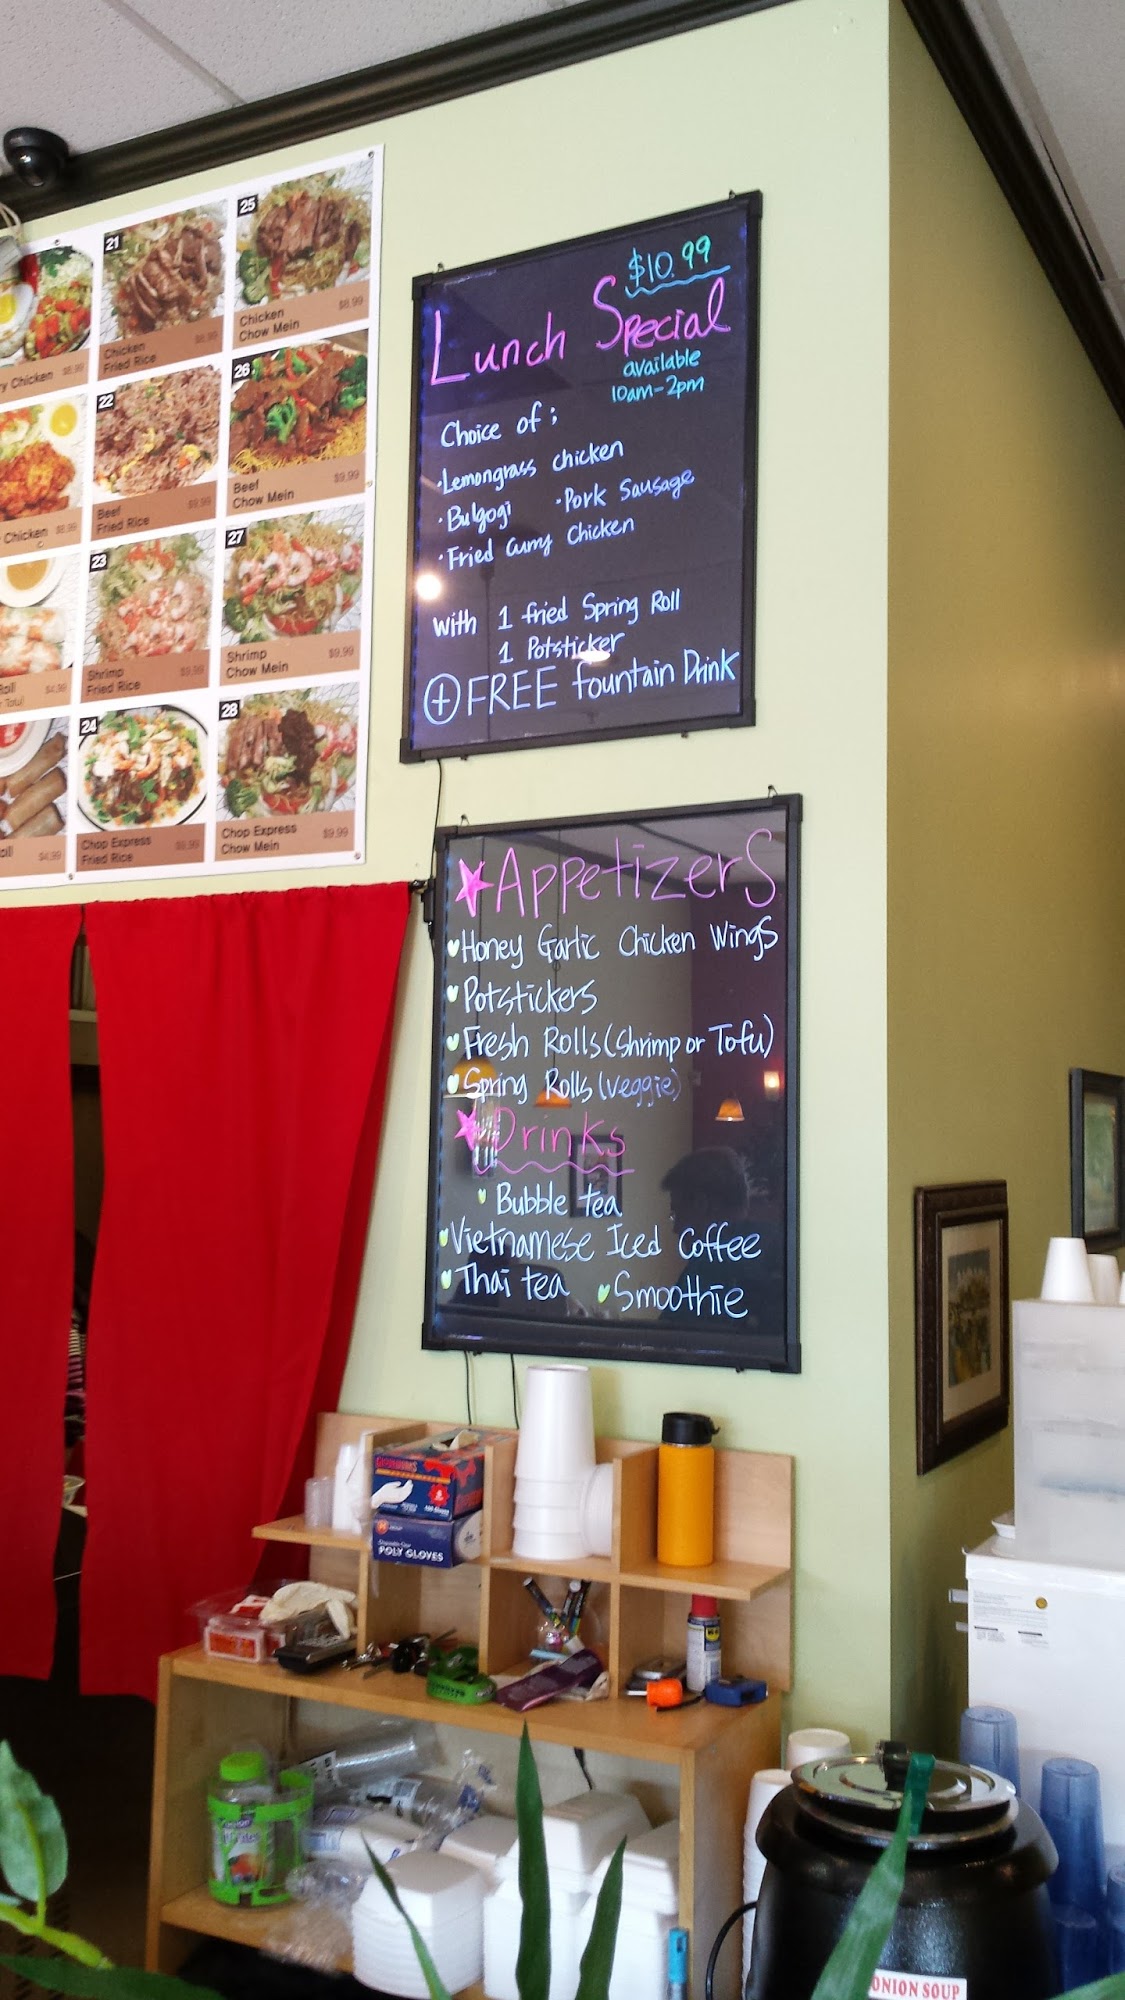 ry Chicken $8.99
Chicken
C
oll
$4.99
oll $4.99
21
Chicken
Fried Rice
22
Beef $9.99
Fried Rice
23
Shrimp $9.99
Fried Rice
24
Chop Express $9.99
Fried Rice
25
Chicken $8.99
Chow Mein
26
Beef $9.99
Chow Mein
27
Shrimp $9.99
Chow Mein
28
Chop Express $9.99
Chow Mein
$10.99
Lunch Special
available
10am-2pm
Choice of ;
·Lemongrass chicken
·Bulgogi ·Pork Sausage
·Fried Curry Chicken
with 1 fried Spring Roll
1 Potsticker
+ FREE fountain Drink
Appetizers
Honey Garlic Chicken Wings
Potstickers
Fresh Rolls (Shrimp or Tofu)
Spring Rolls (veggie)
Drinks
Bubble tea
Vietnamese Iced Coffee
Thai tea Smoothie
POLY GLOVES
ONION SOUP